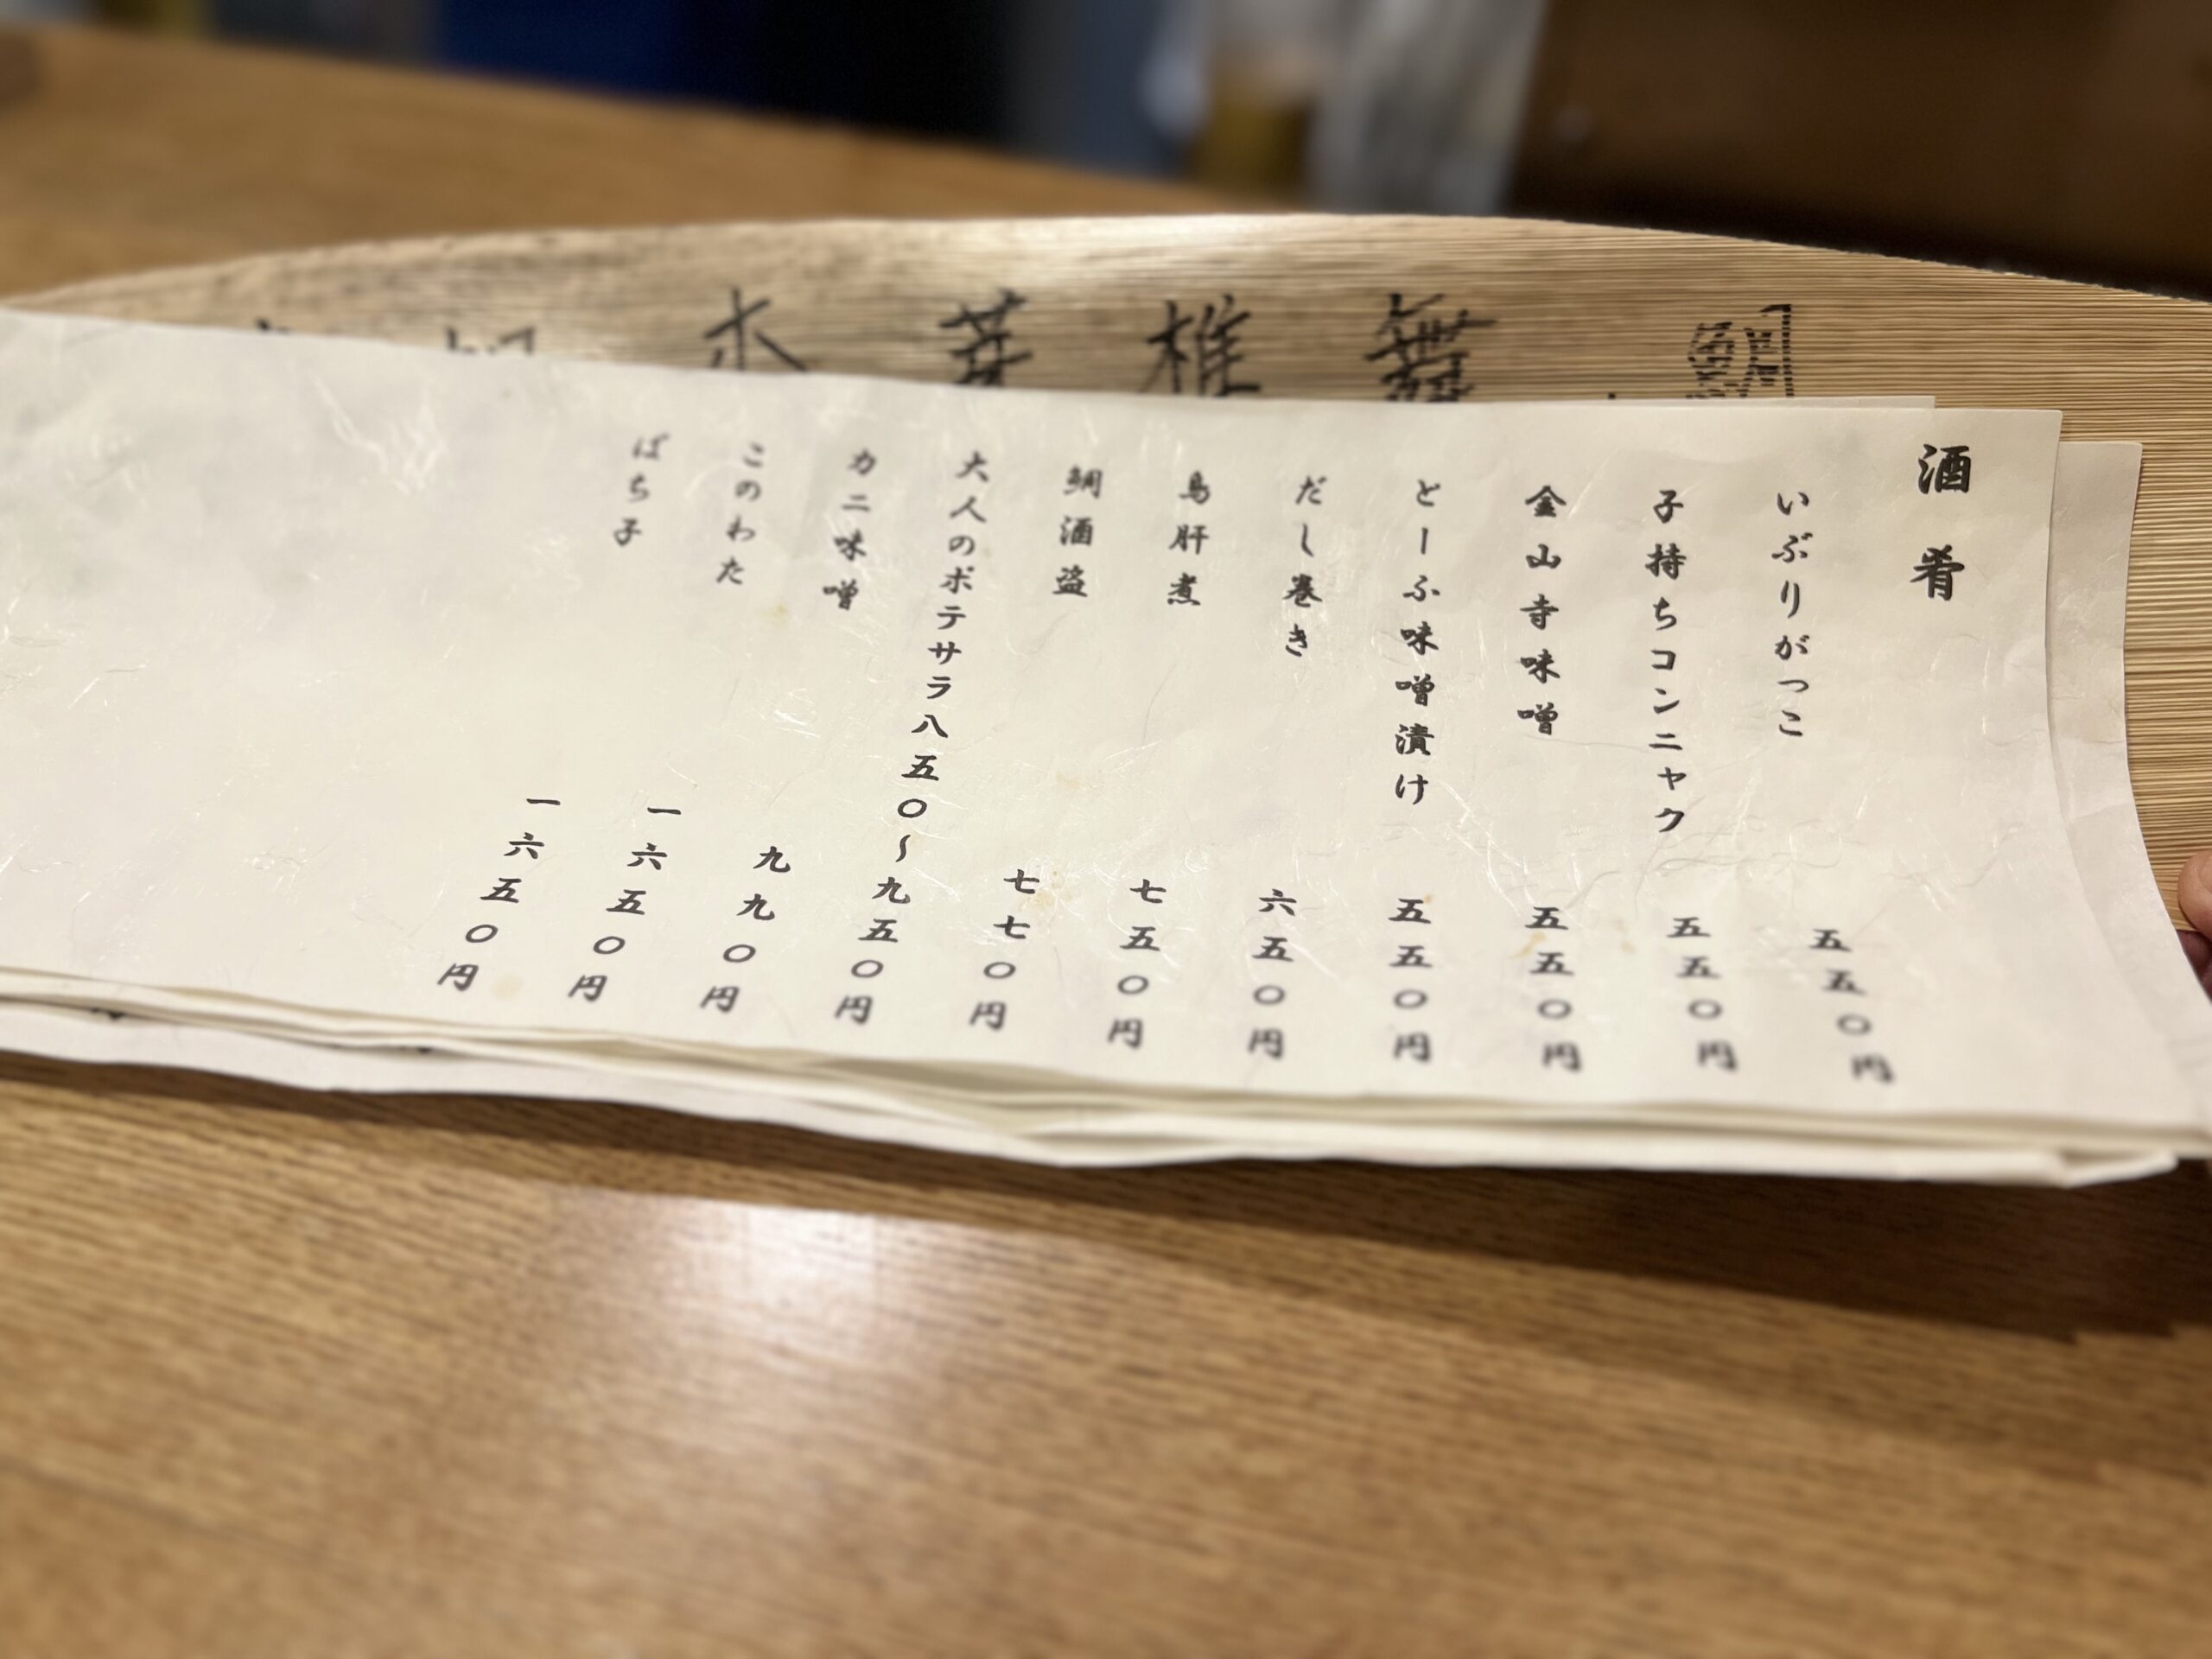 酒肴
いぶりがっこ 五五〇円
子持ちコンニャク 五五〇円
金山寺味噌 五五〇円
とーふ味噌漬け 五五〇円
だし巻き 六五〇円
鳥肝煮 七五〇円
鯛酒盗 七七〇円
大人のポテサラ八五〇〜九五〇円
カニ味噌 九九〇円
このわた 一六五〇円
ばち子 一六五〇円
鯛
舞
椎
芽